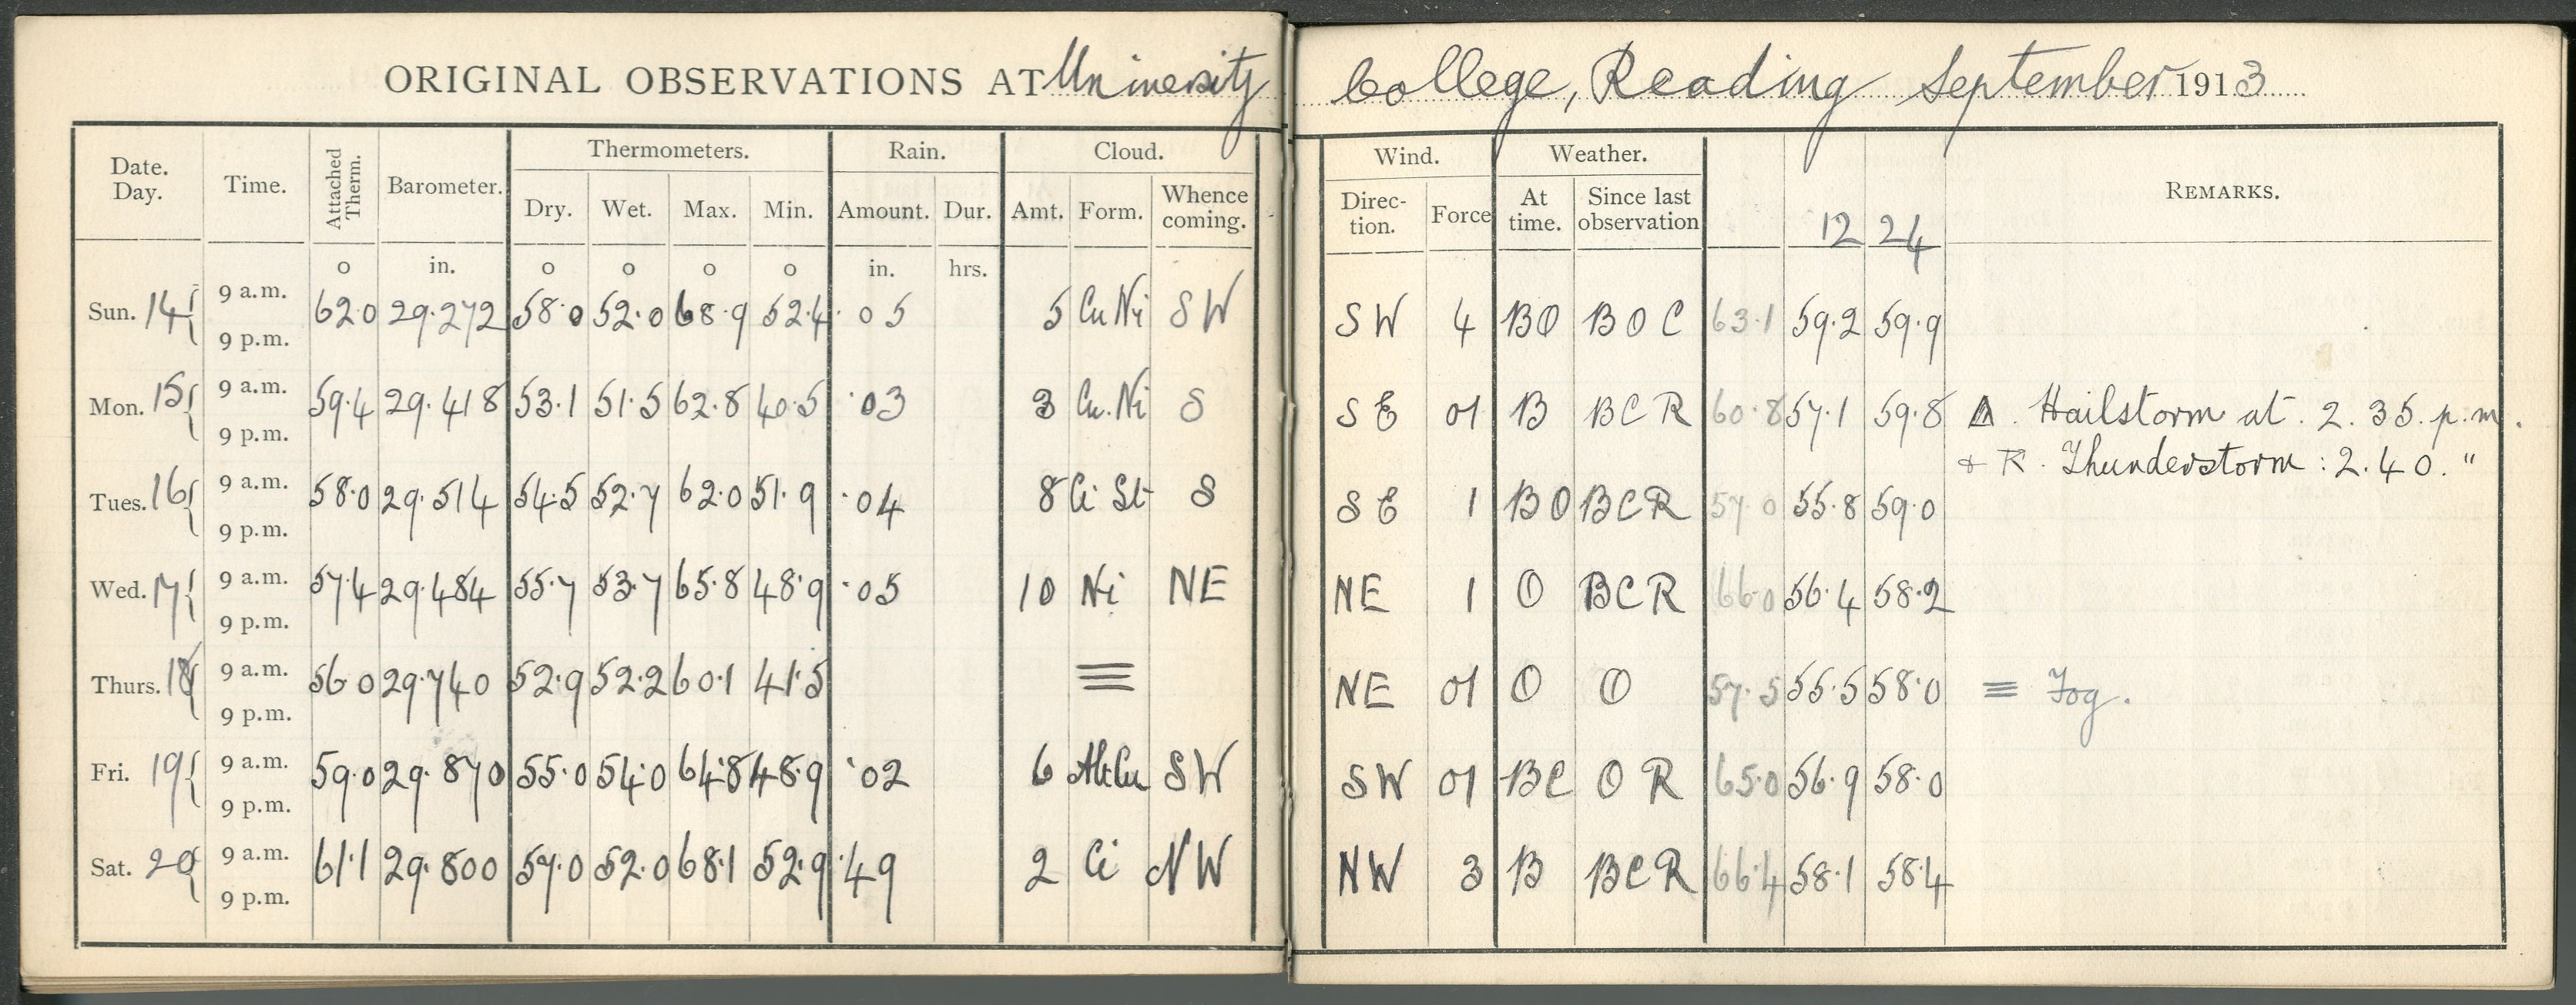 ORIGINAL OBSERVATIONS AT University College, Reading September 1913
Date. Day. Time. Attached Therm. Barometer. Thermometers. Rain. Cloud. Wind. Weather. REMARKS.
Dry. Wet. Max. Min. Amount. Dur. Amt. Form. Whence coming. Direc- tion. Force At time. Since last observation 12 24
o in. o o o o in. hrs.
Sun. 14 { 9 a.m. 62.0 29.272 58.0 52.0 68.9 52.4 .05 5 Cu Ni SW SW 4 BO BOC 63.1 59.2 59.9
9 p.m.
Mon. 15 { 9 a.m. 59.4 29.418 53.1 51.5 62.8 40.5 .03 3 Cu.Ni S SE 01 B BCR 60.8 57.1 59.8 ▲. Hailstorm at. 2.35. p.m.
9 p.m. + R. Thunderstorm : 2.40. "
Tues. 16 { 9 a.m. 58.0 29.514 54.5 52.7 62.0 51.9 .04 8 Ci St S SE 1 BO BCR 57.0 55.8 59.0
9 p.m.
Wed. 17 { 9 a.m. 57.4 29.484 55.7 53.7 65.8 48.9 .05 10 Ni NE NE 1 O BCR 66.0 56.4 58.2
9 p.m.
Thurs. 18 { 9 a.m. 56.0 29.740 52.9 52.2 60.1 41.5 ≡ NE 01 O O 57.5 55.5 58.0 ≡ Fog.
9 p.m.
Fri. 19 { 9 a.m. 59.0 29.870 55.0 54.0 64.8 48.9 .02 6 Alt Cu SW SW 01 BC OR 65.0 56.9 58.0
9 p.m.
Sat. 20 { 9 a.m. 61.1 29.800 57.0 52.0 68.1 52.9 .49 2 Ci NW NW 3 B BCR 66.4 58.1 58.4
9 p.m.